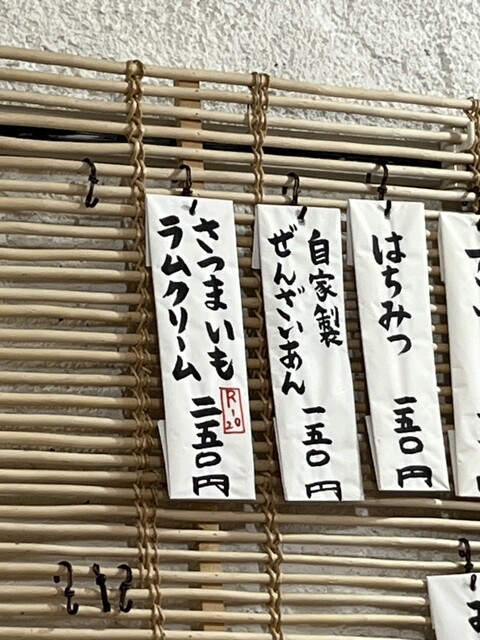 はちみつ 一五〇円
自家製
ぜんざいあん 一五〇円
さつまいも
ラムクリーム
R-20
二五〇円